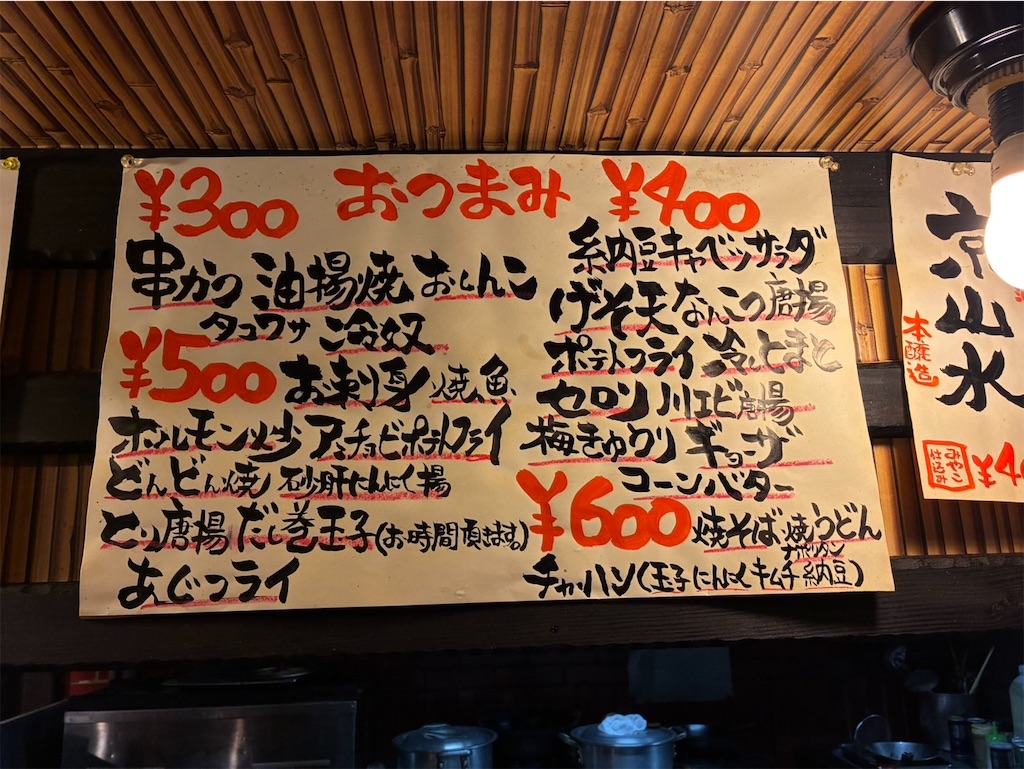 おつまみ
¥300
串かつ 油揚焼 おしんこ
タコワサ 冷奴
¥500 お刺身 焼魚
ホルモン炒 アンチョビポテトフライ
どんどん焼 砂肝にんにく揚
とり唐揚 だし巻玉子(お時間頂きます。)
あぐーフライ
¥400
納豆キャベツサラダ
げそ天 なんこつ唐揚
ポテトフライ 冷しとまと
セロリ 川エビ唐揚
梅きゅうり ギョーザ
コーンバター
¥600 焼そば 焼うどん
ナポリタン
チャーハン(玉子 にんにく キムチ 納豆)
京山水
本醸造
みやこ
仕込み